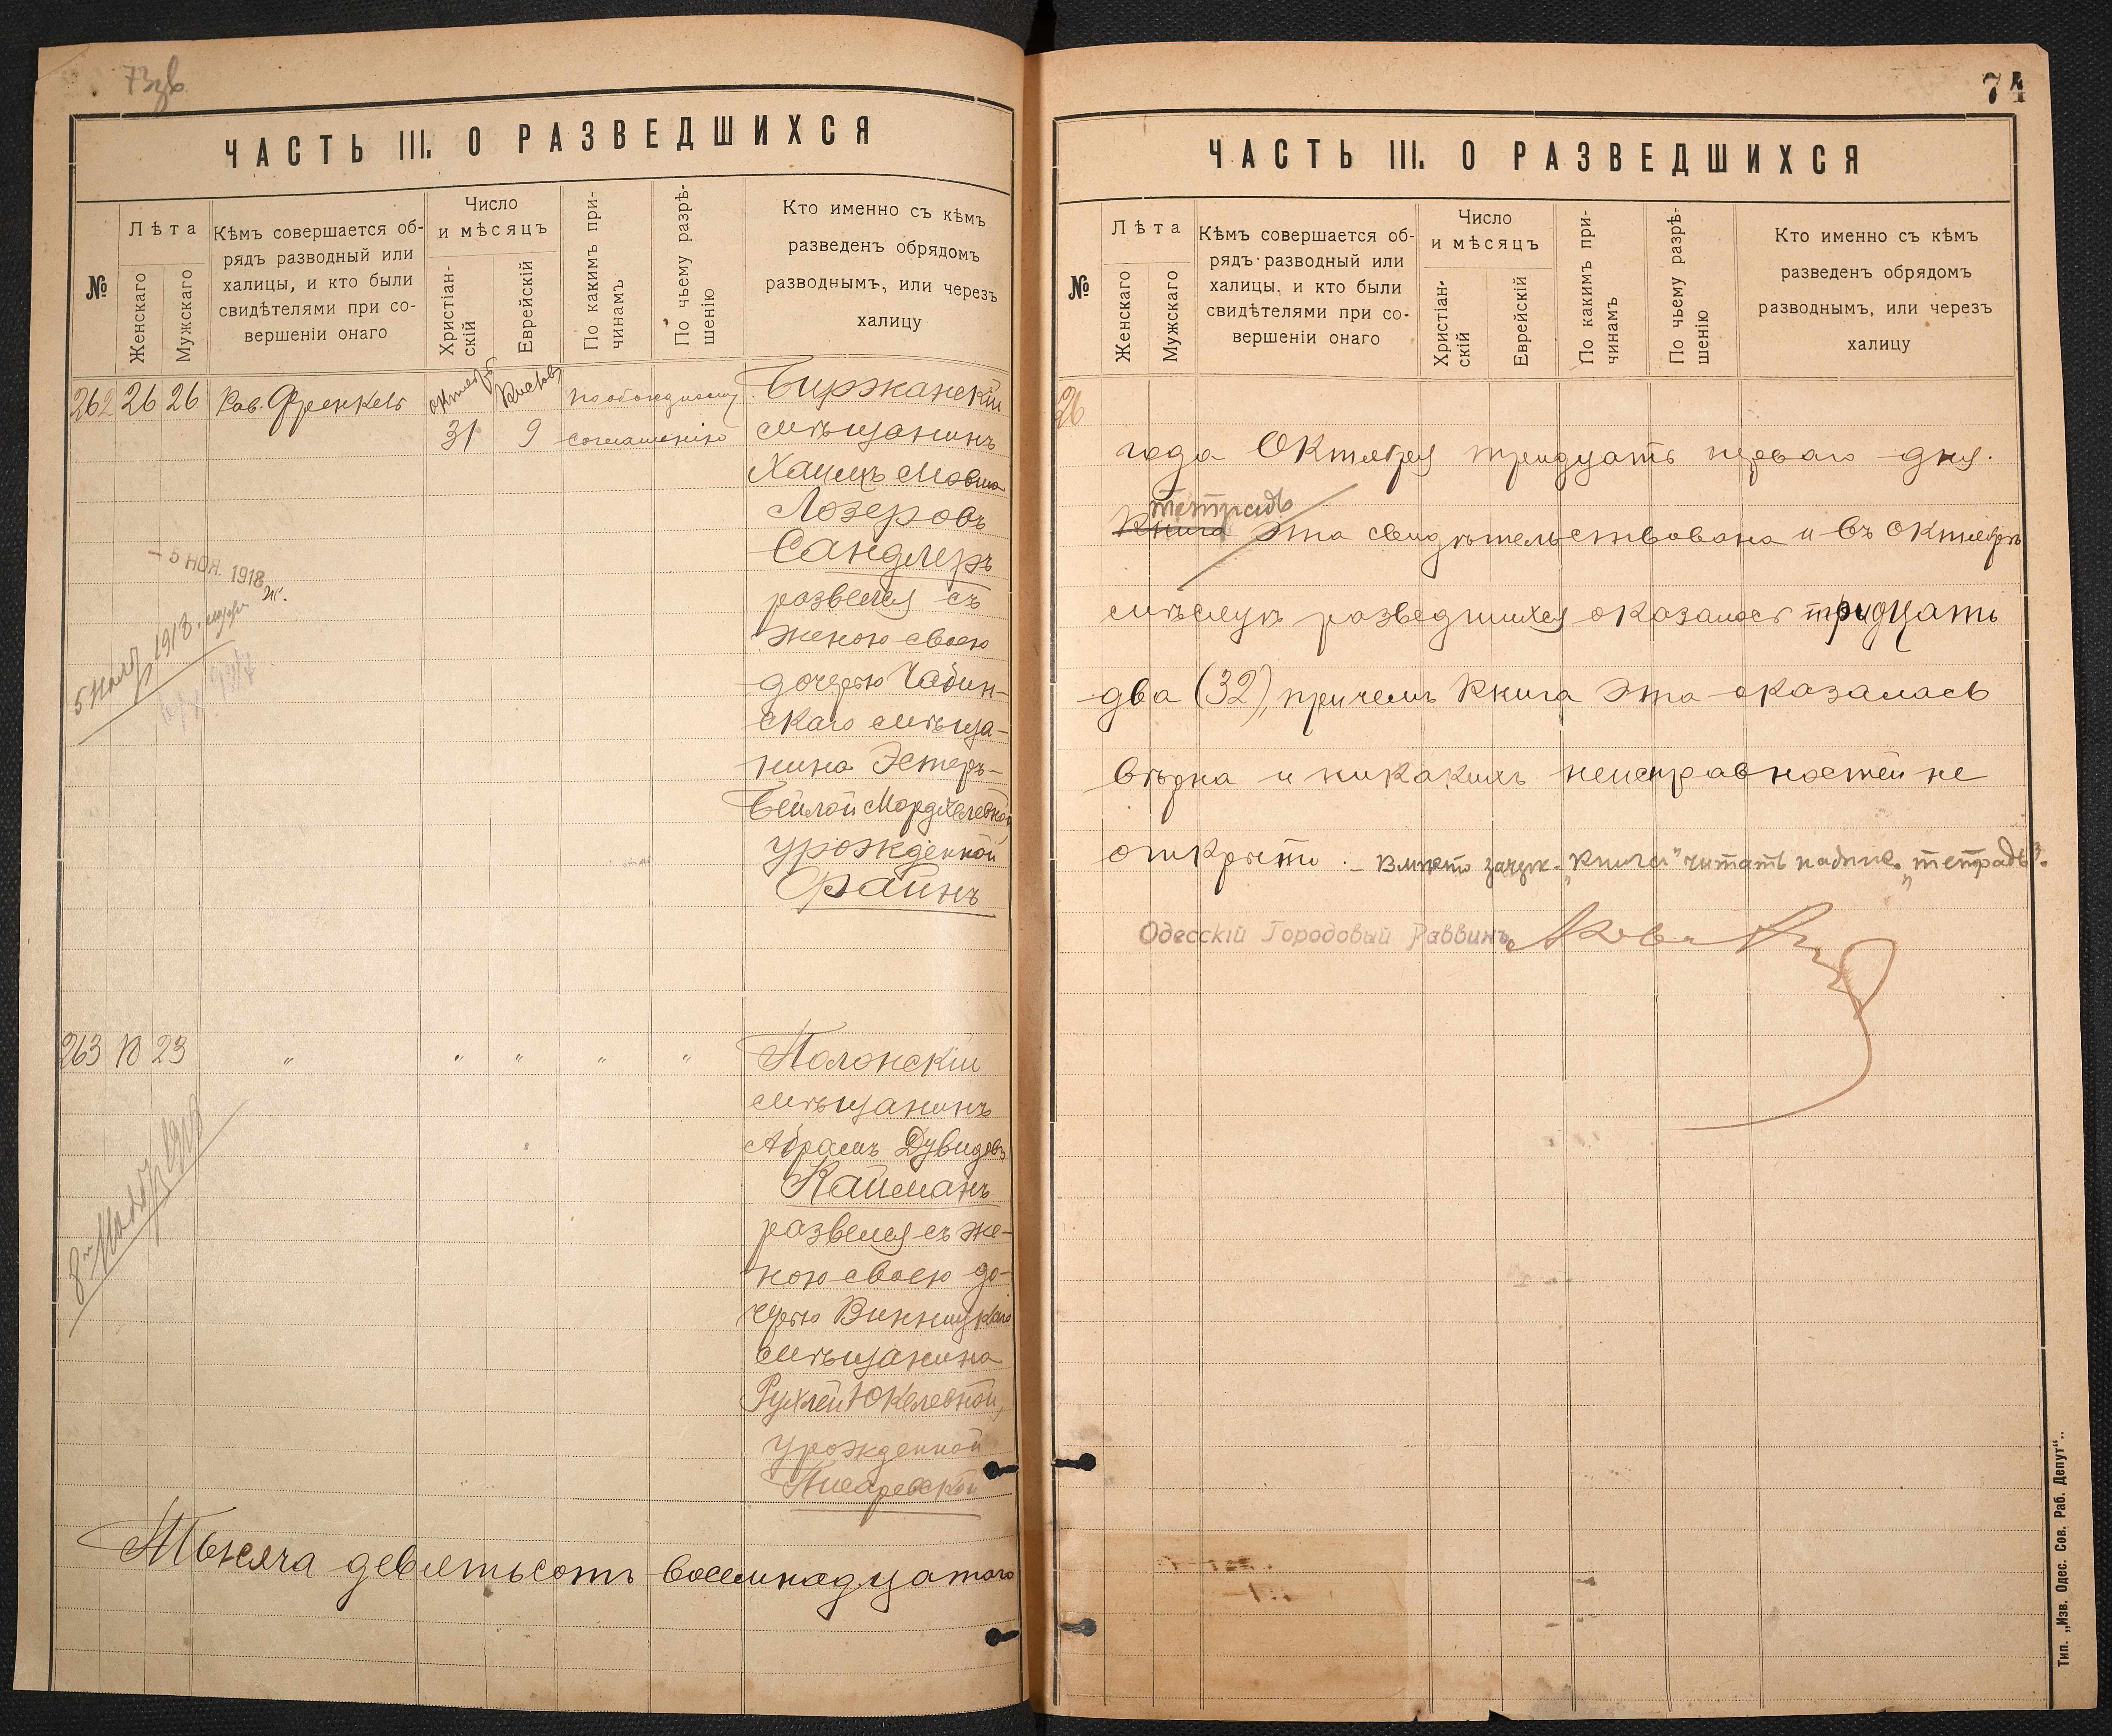 73зв
ЧАСТЬ III. О РАЗВЕДШИХСЯ
№
Лѣта
Женскаго
Мужскаго
Кѣмъ совершается об-
рядъ разводный или
халицы, и кто были
свидѣтелями при со-
вершеніи онаго
Число
и мѣсяцъ
Христіан-
скій
Еврейскій
По какимъ при-
чинамъ
По чьему разрѣ-
шенію
Кто именно съ кѣмъ
разведенъ обрядомъ
разводнымъ, или черезъ
халицу
262 26 26 Рав. Френкель
Октябрь
31
9
по обоюдному
соглашенію
Биржанскій
мѣщанинъ
Хаимъ Мовша
Лозеровъ
Сандлеръ
развелся съ
женою своею
дочерью Чабин-
скаго мѣща-
нина Эстеръ-
Бейлой Мордхелевной
урожденной
Файнъ
- 5 НОЯ. 1918
5 Нояб 1918
263 18 23 " " " " "
Полонскій
мѣщанинъ
Абрамъ Дувидовъ
Кайманъ
развелся съ же-
ною своею до-
черью Винницкаго
мѣщанина
Рухлей Юкелевной,
урожденной
Писаревской
1918
Тысяча девятьсотъ восемнадцатаго
74
ЧАСТЬ III. О РАЗВЕДШИХСЯ
№
Лѣта
Женскаго
Мужскаго
Кѣмъ совершается об-
рядъ разводный или
халицы, и кто были
свидѣтелями при со-
вершеніи онаго
Число
и мѣсяцъ
Христіан-
скій
Еврейскій
По какимъ при-
чинамъ
По чьему разрѣ-
шенію
Кто именно съ кѣмъ
разведенъ обрядомъ
разводнымъ, или черезъ
халицу
26
года Октября тридцать перваго дня.
тетрадь
Книга эта свидѣтельствована и въ Октябрѣ
мѣсяцѣ разведшихся оказалось тридцать
два (32), причемъ Книга эта оказалась
вѣрна и никакихъ неисправностей не
открыто. - Вмѣсто зачерк. „Книга" читать надпис. „тетрадь".
Одесскій Городовый Раввинъ
Тип. „Изв. Одес. Сов. Раб. Депут"..